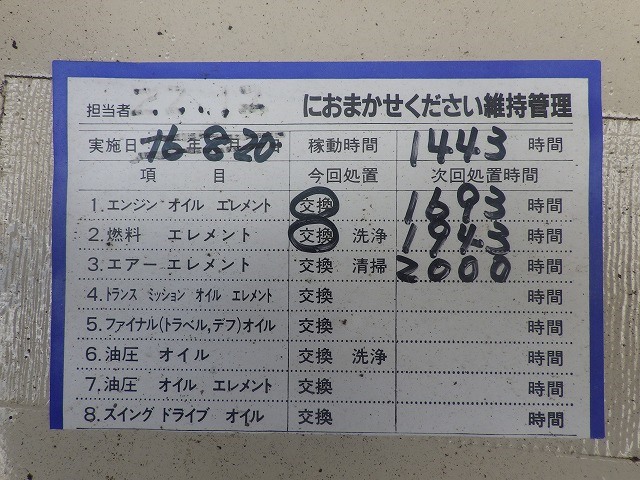 担当者 におまかせください維持管理
実施日 16年8月20日 稼動時間 1443 時間
項 目 今回処置 次回処置時間
1.エンジン オイル エレメント 交換 1693 時間
2.燃料 エレメント 交換 洗浄 1943 時間
3.エアー エレメント 交換 清掃 2000 時間
4.トランス ミッション オイル エレメント 交換 時間
5.ファイナル(トラベル,デフ)オイル 交換 時間
6.油圧 オイル 交換 洗浄 時間
7.油圧 オイル エレメント 交換 時間
8.スイング ドライブ オイル 交換 時間